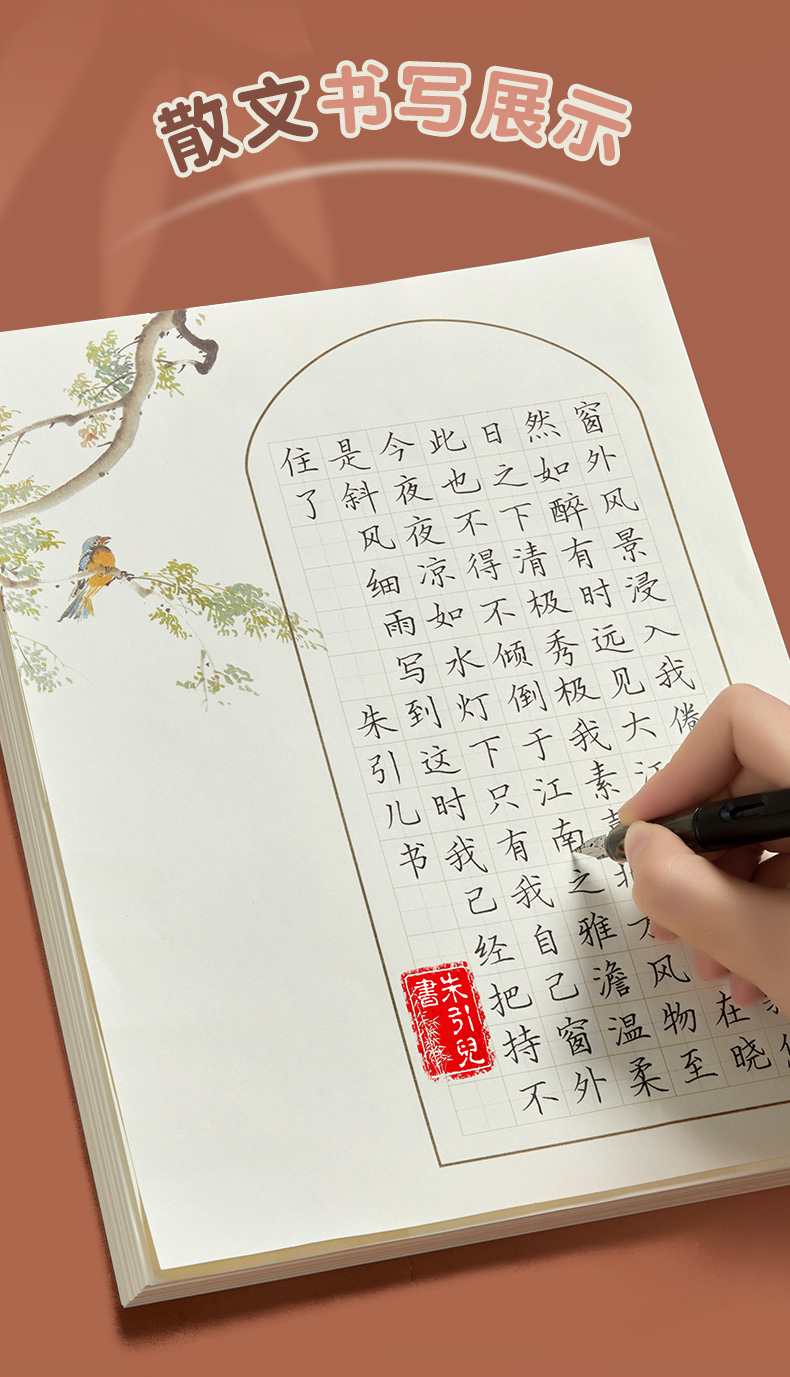 散文书写展示
窗外风景浸入我倦
然如醉有时远见大江在晓
日之下清极秀极我素喜北风物至
此也不得不倾倒于江南之雅澹温柔
今夜夜凉如水灯下只有我自己窗外
是斜风细雨写到这时我己经把持不
住了
朱引儿书
朱引兒
書